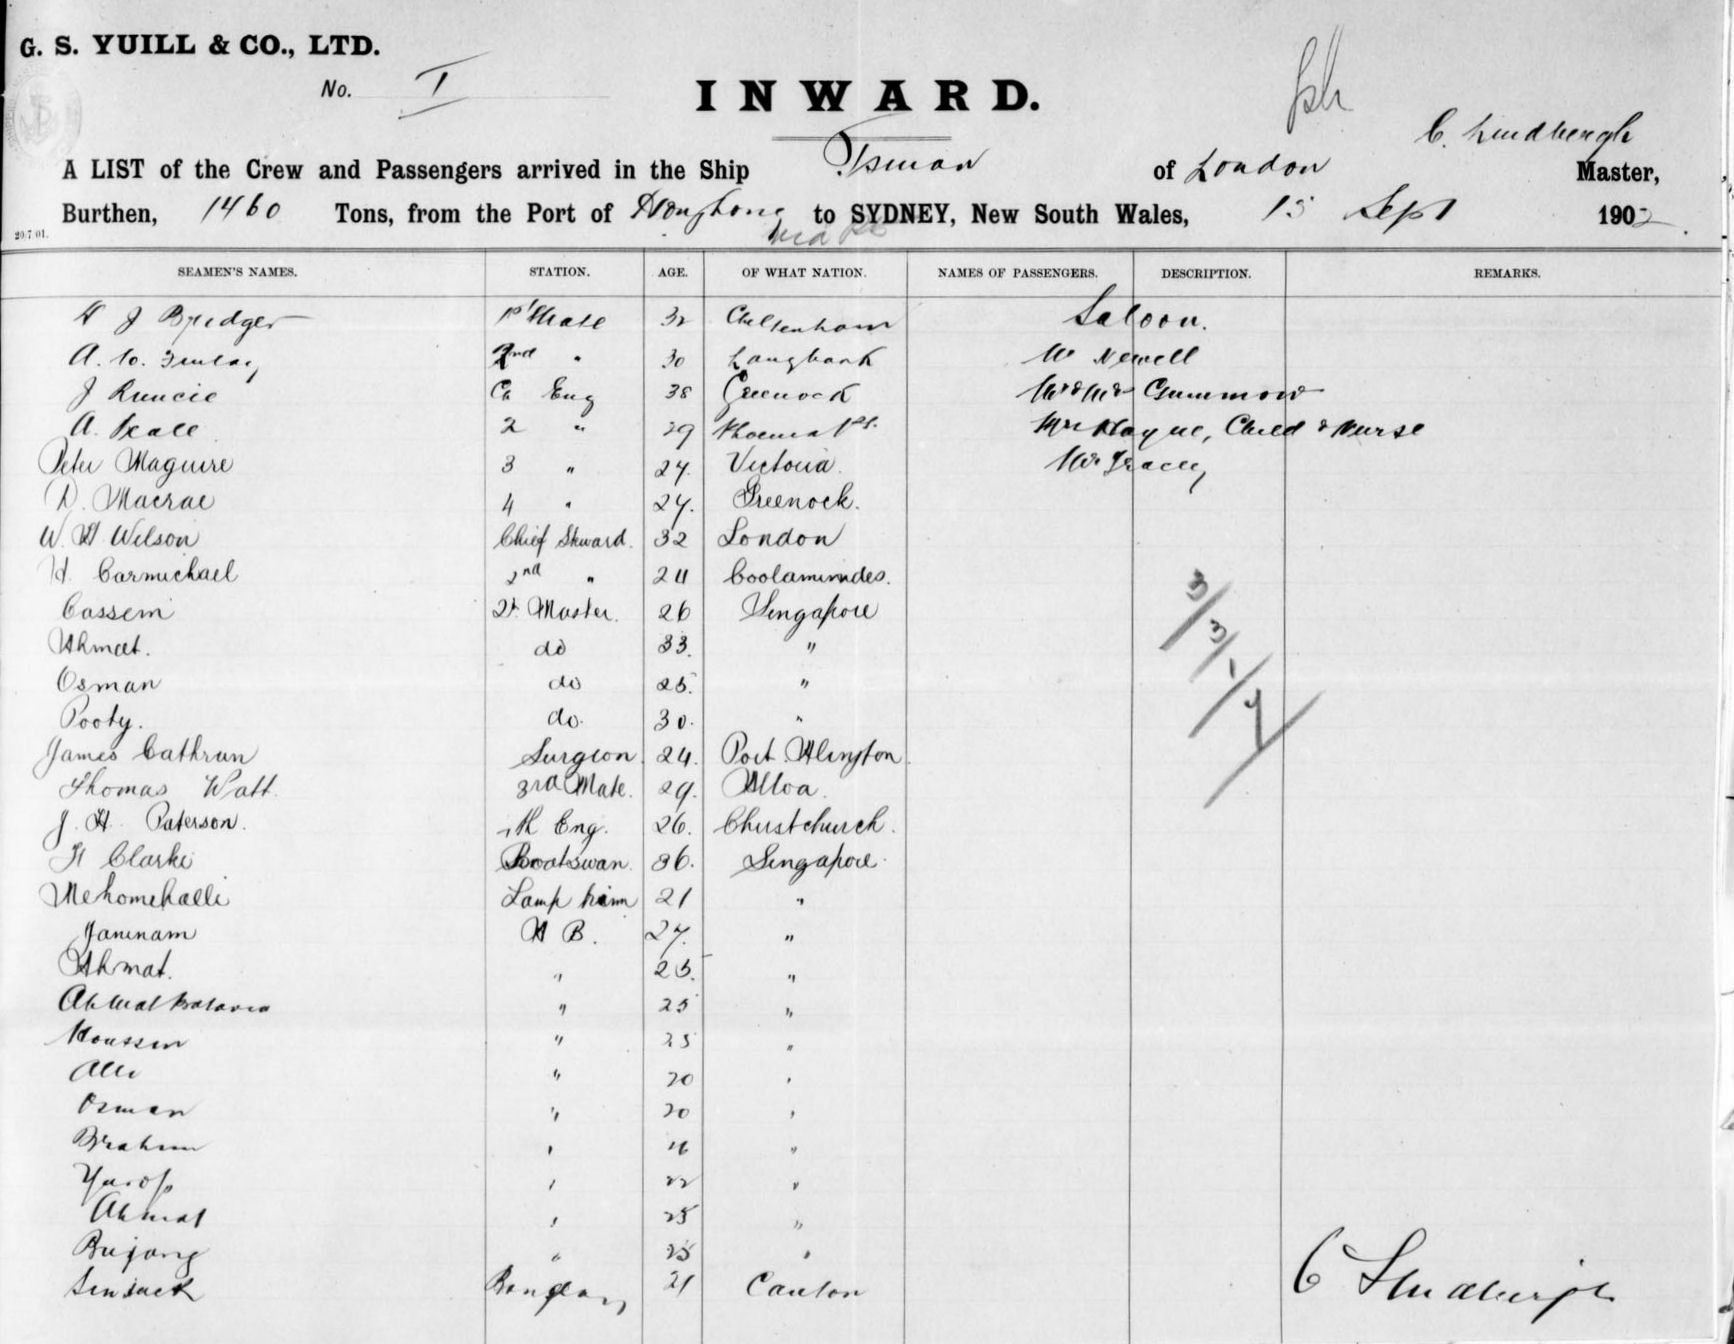 G. S. YUILL & CO., LTD.
No. I
INWARD.
C. Lindbergh
A LIST of the Crew and Passengers arrived in the Ship Tsinan of London Master,
Burthen, 1460 Tons, from the Port of Hongkong to SYDNEY, New South Wales, 15 Sept 1902
via
20.7.01.
SEAMEN'S NAMES. STATION. AGE. OF WHAT NATION. NAMES OF PASSENGERS. DESCRIPTION. REMARKS.
J Bridger 1st Mate 32 Cheltenham Saloon.
A. 2nd " 30 Langbank Newell
J Runcie Ch Eng 38 Greenock Gummow
A. 2 " 29 Mrs Hague, Child & Nurse
Peter Maguire 3 " 27. Victoria. Mr Gracey
D. Macrae 4 " 27. Greenock.
W. H. Wilson Chief Steward. 32 London
H. Carmichael 2nd " 24
Cassem Qr Master. 26 Singapore
Ahmat. do 33. "
Osman do 25. "
Pooty. do. 30. "
James Cathrun Surgeon 24. Port Alington
Thomas Watt. 3rd Mate. 29. Alloa.
J. H. Paterson. Eng. 26. Christchurch.
H Clarke Boatswan. 36. Singapore.
Lamp trim 21 "
Janinam A B. 27. "
Ahmat. " 25. "
Ahmat Batavia " 25 "
Houssin " 25 "
Alli " 20 "
Osman " 20 "
Brahim " "
Yusop " 22 "
Ahmat " 25 "
Bujang " 25 "
21 Canton
3/3/1/7
C Lindbergh